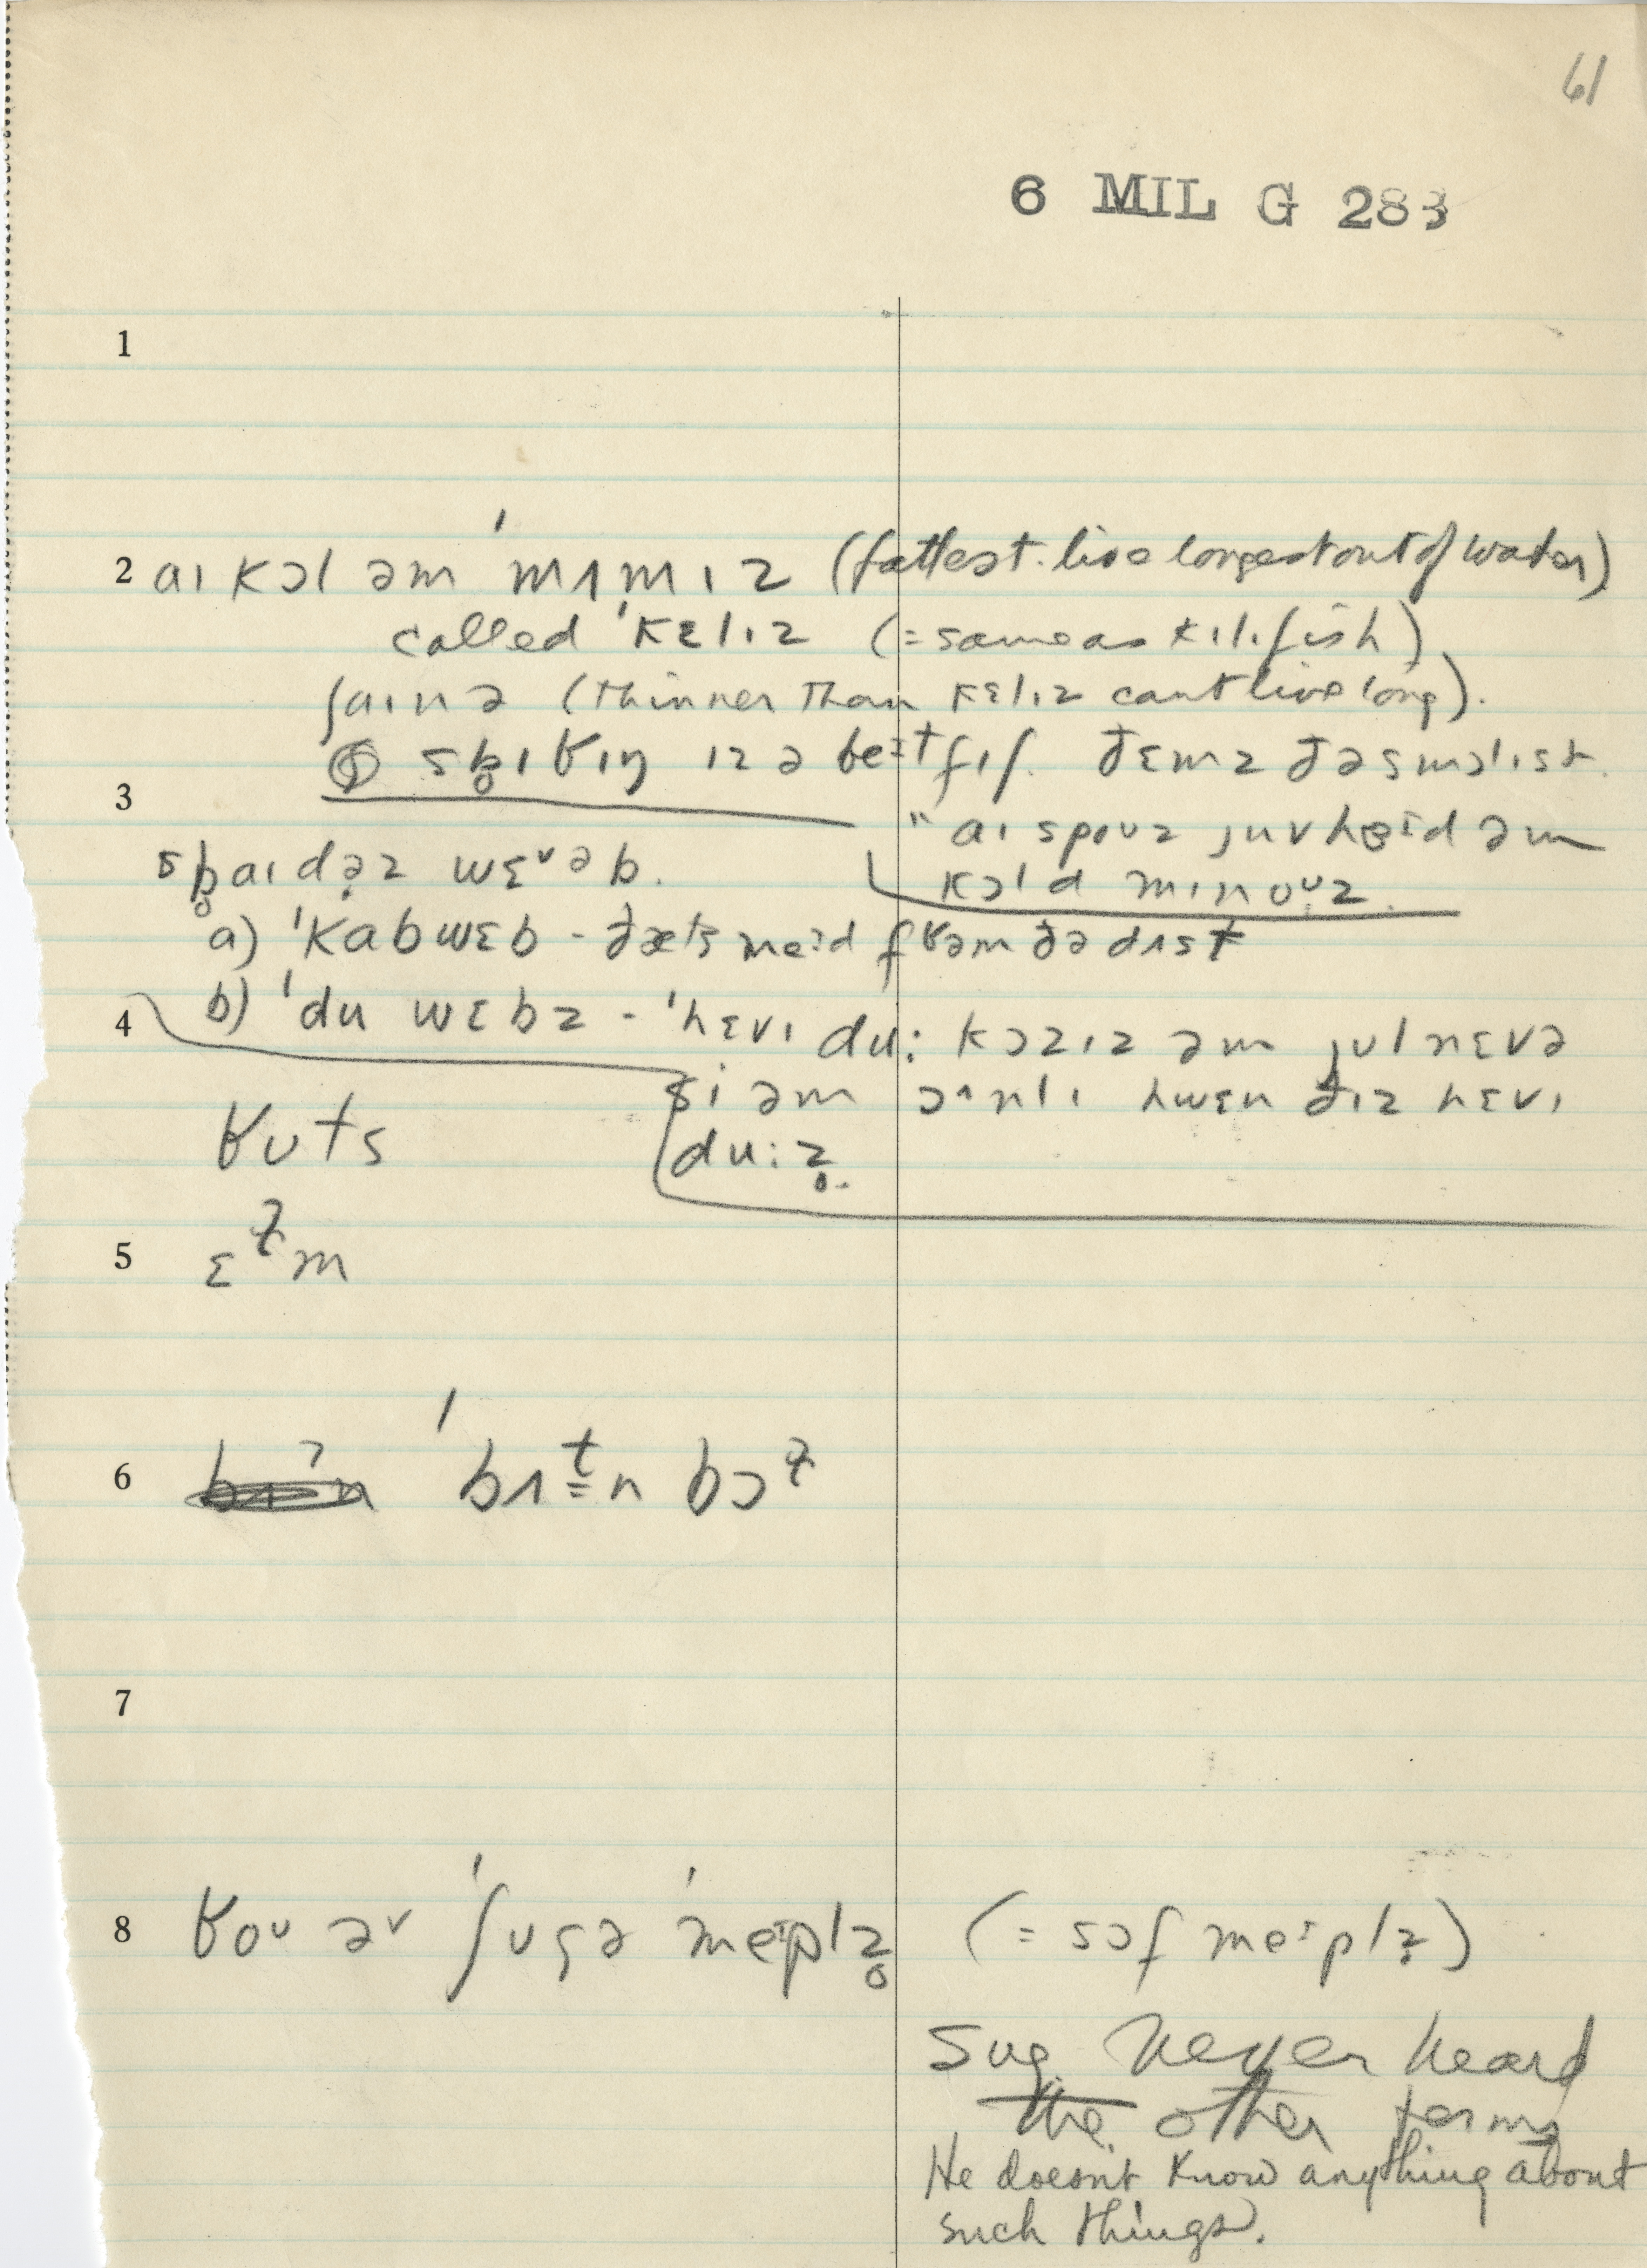 61
6 MIL G 283
1
2 aɪ kɔl əm ˈmʌmɪz (fattest. live longest out of water)
called ˈkɛlɪz (= same as kɪlɪfish)
ʃaɪnə (thinner than kɛlɪz cant live long).
sb̥ɪʁɪŋ ɪz ə beɪt fɪʃ. ðɛmz ðə smɔlɪst.
3
" aɪ spouz juv heɪd əm
kɔld mɪnouz.
sb̥aɪdəz wɛᵛəb.
a) ˈkabwɛb - ðæts meɪd fʁəm ðə dʌst
4 b) ˈdu wɛbz - ˈhɛvɪ du: kɔzɪz əm jul nɛvə
si əm ɔnlɪ hwɛn ðɪz hɛvɪ
du:z̥.
ʁuts
5 ɛɫm
6 ˈbʌtn bɔɫ
7
8 ʁoᵘ əv ˈʃugə ˈmeɪplz̥ (= sɔf meɪplz̥)
sug. never heard
the other terms
He doesnt know anything about
such things.